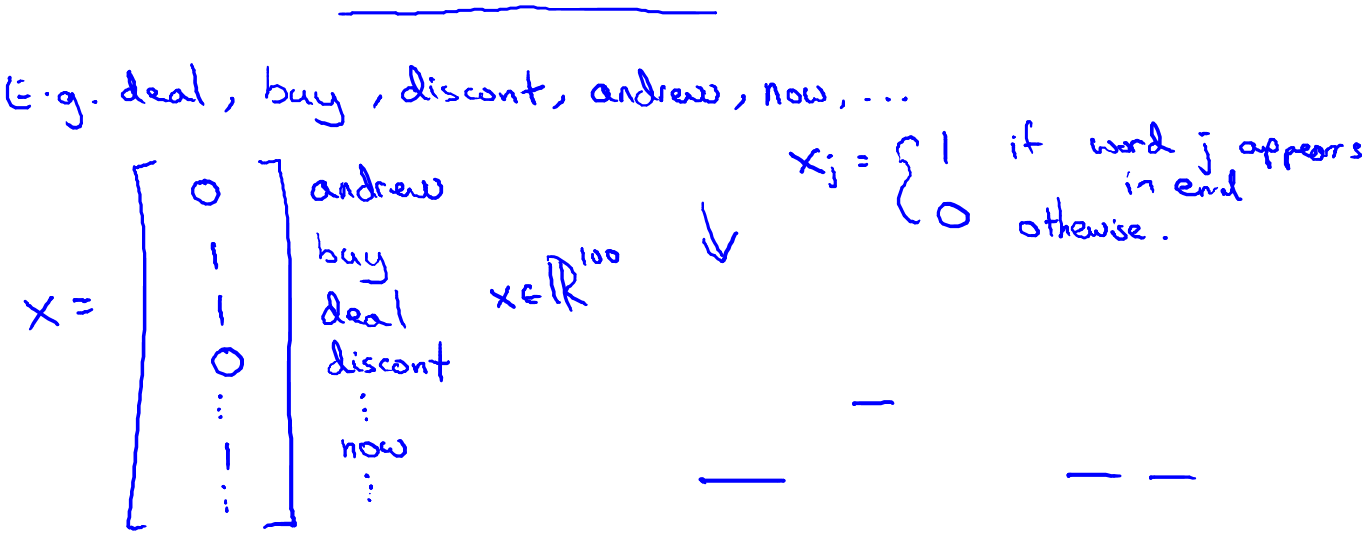 E.g. deal, buy, discont, andrew, now, ...
x = [ 0 andrew
1 buy
1 deal
0 discont
⋮ ⋮
1 now
⋮ ] ⋮
x ∈ ℝ^100
xj = { 1 if word j appears
in email
0 othewise.